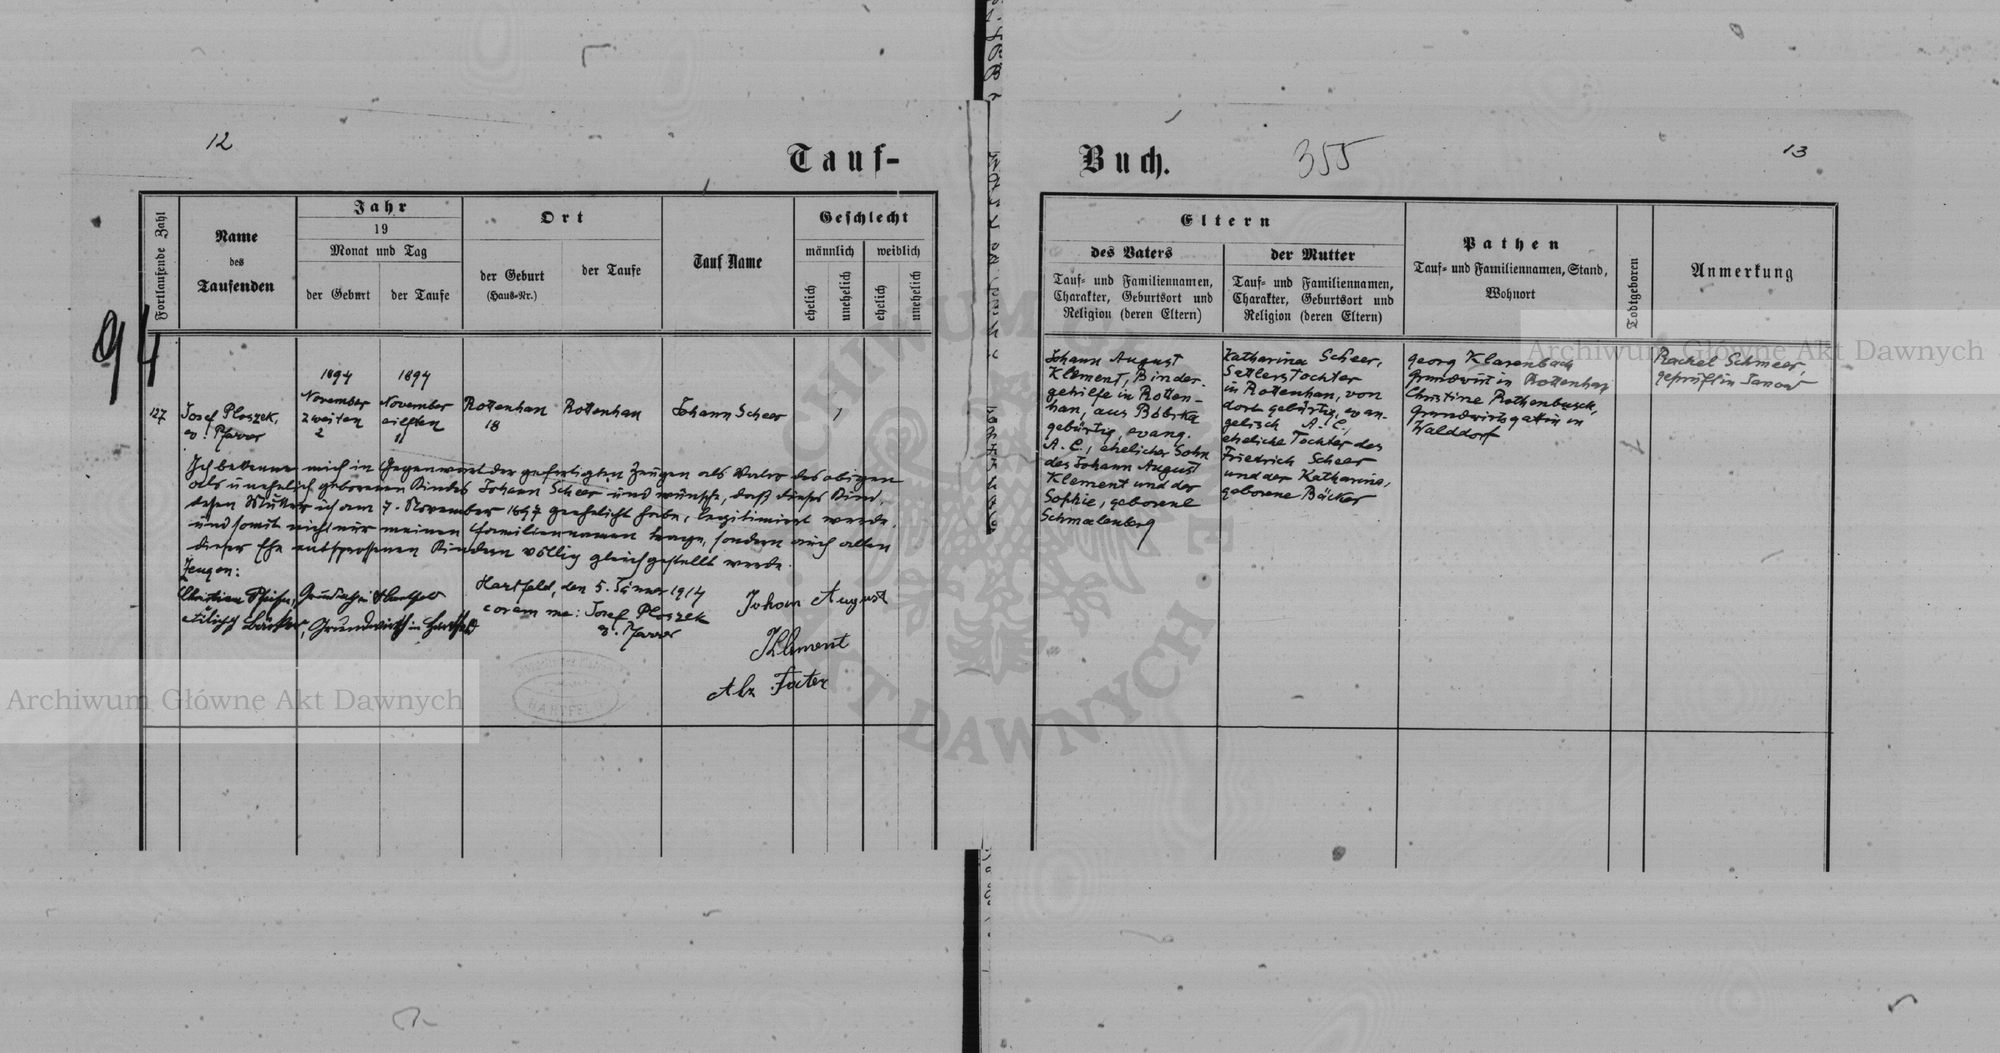 12
Tauf-
Buch.
355
13
94
Fortlaufende Zahl
Name
des
Taufenden
Jahr
19
Monat und Tag
der Geburt
der Taufe
Ort
der Geburt
(Haus-Nr.)
der Taufe
Tauf Name
Geschlecht
männlich
weiblich
ehelich
unehelich
ehelich
unehelich
127
Josef Ploszek,
ev. Pfarrer
1894
November
zweiten
2
1894
November
eilften
11
Rottenhan
18
Rottenhan
Johann Scheer
1
Ich bekenne mich in Gegenwart der gefertigten Zeugen als Vater des obigen
als unehelich geborenen Kindes Johann Scheer und wünsche, daß dieses Kind,
dessen Mutter ich am 7. November 1897 geehelicht habe, legitimiert werde
und somit nicht nur meinen Familiennamen trage, sondern auch allen
dieser Ehe entsprossenen Kindern völlig gleichgestellt werde.
Zeugen:
Christian
Grundwirt in Hartfeld
Bäcker, Grundwirth in Hartfeld
Hartfeld, den 5. Jänner 1914
coram me: Josef Ploszek
ev. Pfarrer
Johan August
Klement
Als Fater
HARTFELD
Eltern
des Vaters
Tauf- und Familiennamen,
Charakter, Geburtsort und
Religion (deren Eltern)
der Mutter
Tauf- und Familiennamen,
Charakter, Geburtsort und
Religion (deren Eltern)
Pathen
Tauf- und Familiennamen, Stand,
Wohnort
Todtgeboren
Anmerkung
Johann August
Klement, Binder-
gehilfe in Rotten-
han, aus Bóbrka
gebürtig, evang.
A. C., ehelicher Sohn
des Johann August
Klement und der
Sophie, geborene
Schmalenberg
Katharina Scheer,
Sattlerstochter
in Rottenhan, von
dort gebürtig, evan-
gelisch A. C.,
eheliche Tochter des
Friedrich Scheer
und der Katharina,
geborene Bäcker
Georg Klarenbach
Grundwirt in Rottenhan
Christine Rothenbusch,
Grundwirtsgattin in
Walddorf
Rachel Schmeer,
geprüft in Janow
Archiwum Główne Akt Dawnych
Archiwum Główne Akt Dawnych
ARCHIWUM GŁÓWNE
AKT DAWNYCH